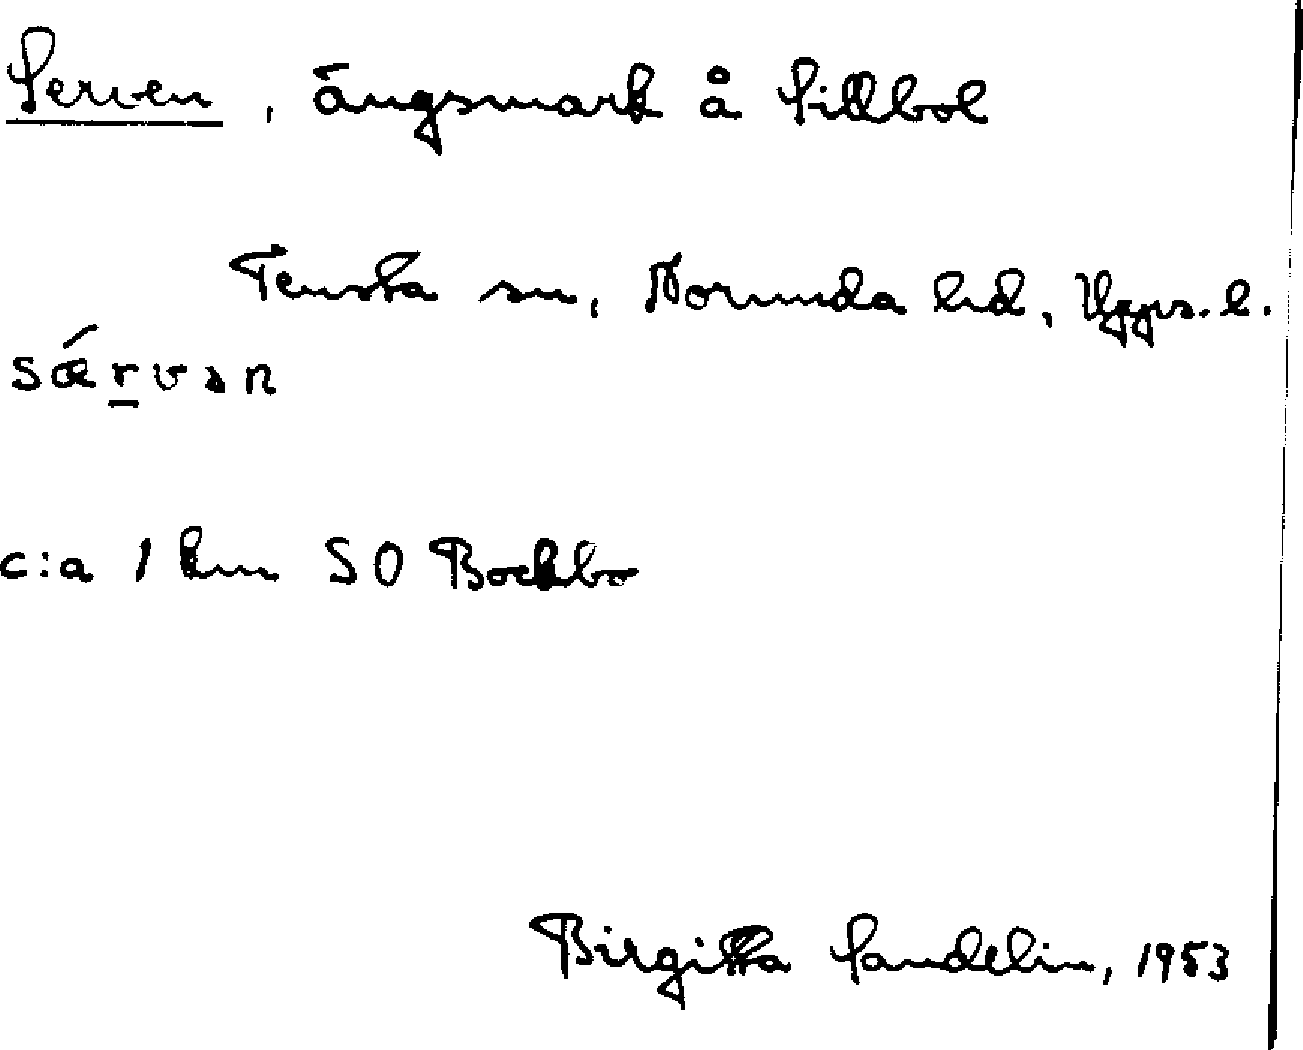 Serven, ängsmark å Sillbol
Tensta sn, Norunda hd, Upps. l.
sǽrvan
c:a 1 km SO Bockbo
Birgitta Sandelin, 1953